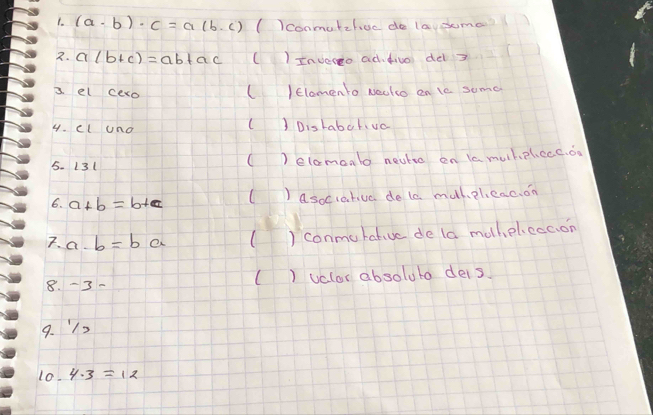 1. (a · b) · c = a (b · c) ( ) conmutativa de la suma
2. a (b + c) = ab + ac ( ) Inverso aditivo del 3
3. el cero ( ) Elemento Neutro en la suma
4. el uno ( ) Distributiva
5. |3| ( ) elemento neutro en la multiplicación
6. a + b = b + a ( ) asociativa de la multiplicación
7. a · b = b a ( ) conmutativa de la multiplicación
8. -3 - ( ) valor absoluto del 3.
9. 1/3
10. 4·3 = 12